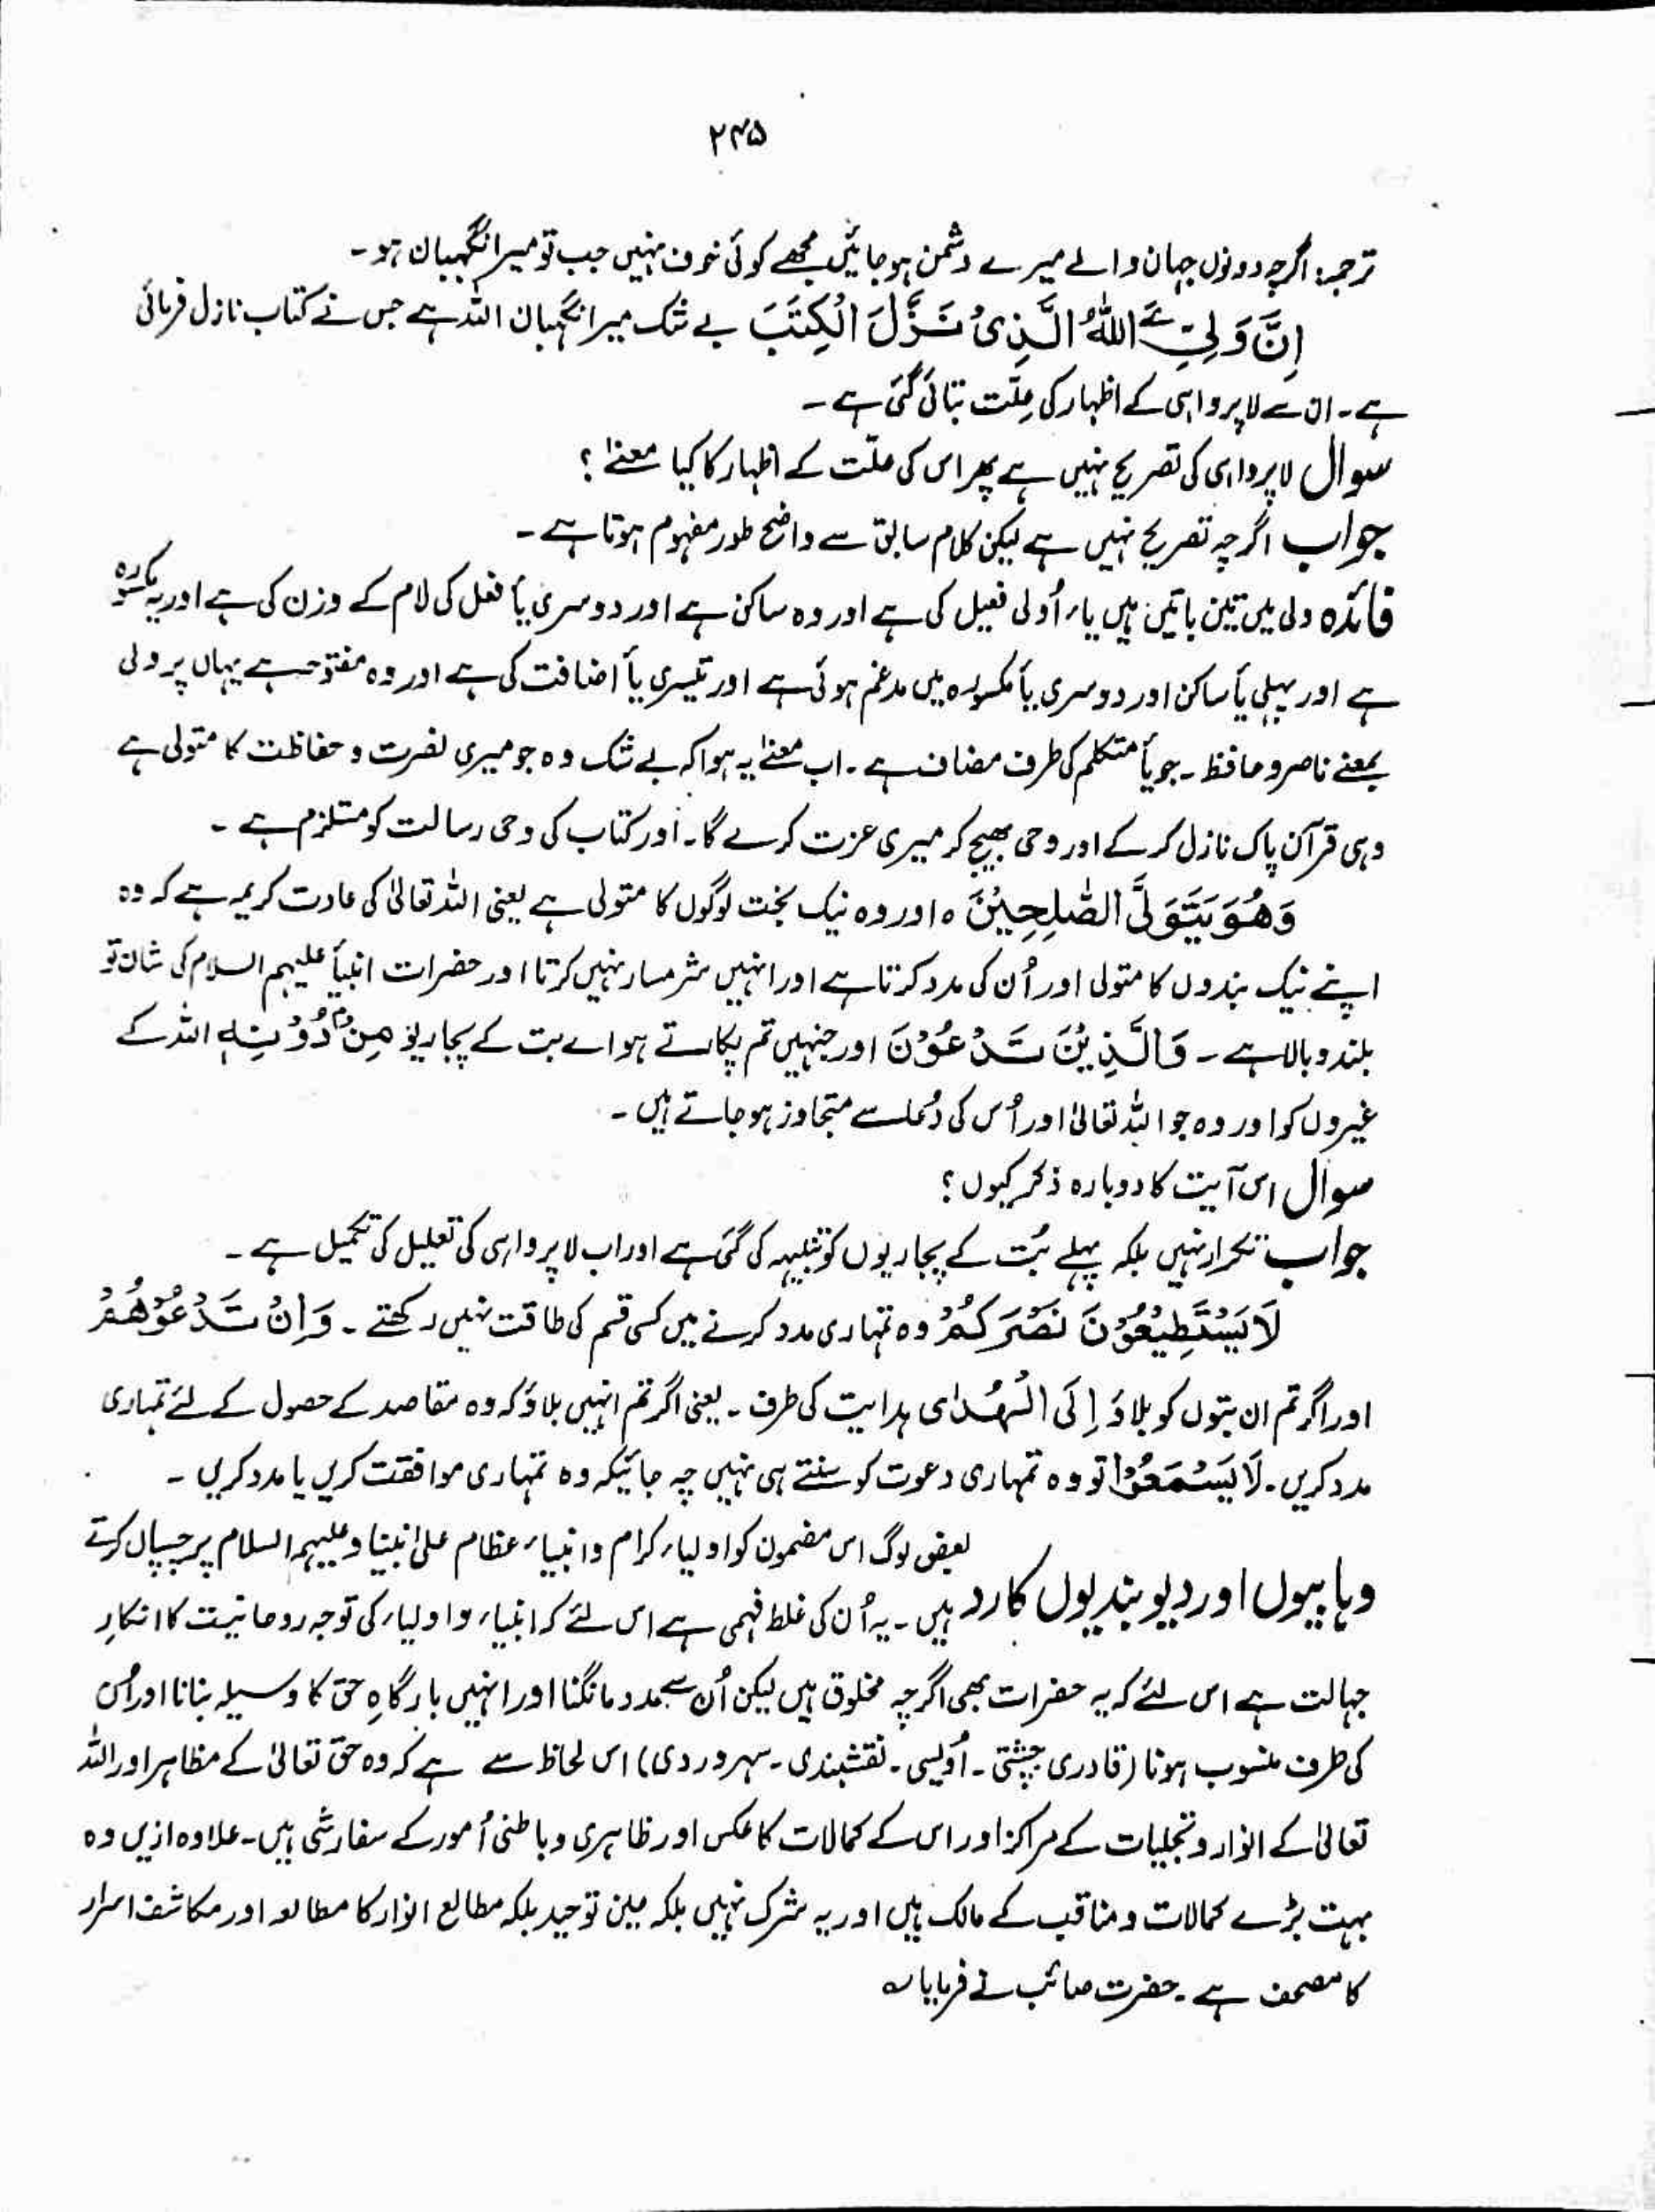 ۲۴۵
ترجمہ: اگرچہ دونوں جہان والے میرے دشمن ہو جائیں مجھے کوئی خوف نہیں جب تو میرا نگہبان ہو۔
اِنَّ وَلِيِّ ےَ اللّٰهُ الَّذِىْ نَزَّلَ الْكِتٰبَ بے شک میرا نگہبان اللہ ہے جس نے کتاب نازل فرمائی
ہے۔ ان سے لاپرواہی کے اظہار کی عِلّت بتائی گئی ہے۔
سوال لاپرواہی کی تصریح نہیں ہے پھر اس کی علّت کے اظہار کا کیا معنےٰ؟
جواب اگرچہ تصریح نہیں ہے لیکن کلام سابق سے واضح طور مفہوم ہوتا ہے۔
فائدہ ولی میں تین باتیں ہیں یاء اُولی فعیل کی ہے اور وہ ساکن ہے اور دوسری یأ فعل کی لام کے وزن کی ہے اور یہ مکسورہ
ہے اور پہلی یأ ساکن اور دوسری یأ مکسورہ میں مدغم ہوئی ہے اور تیسری یأ اضافت کی ہے اور وہ مفتوحہ ہے یہاں پر ولی
بمعنے ناصر و حافظ۔ جو یأ متکلم کی طرف مضاف ہے۔ اب معنےٰ یہ ہوا کہ بے شک وہ جو میری نصرت و حفاظت کا متولی ہے
وہی قرآن پاک نازل کر کے اور وحی بھیج کر میری عزت کرے گا۔ اور کتاب کی وحی رسالت کو مستلزم ہے۔
وَهُوَ يَتَوَلَّى الصّٰلِحِيْنَ ہ اور وہ نیک بخت لوگوں کا متولی ہے یعنی اللہ تعالیٰ کی عادت کریمہ ہے کہ وہ
اپنے نیک بندوں کا متولی اور اُن کی مدد کرتا ہے اور انہیں شرمسار نہیں کرتا اور حضرات انبیأ علیہم السلام کی شان تو
بلند و بالا ہے۔ وَالَّذِيْنَ تَدْعُوْنَ اور جنہیں تم پکارتے ہو اے بت کے پجاریو مِنْ دُوْنِهٖ اللہ کے
غیروں کو اور وہ جو اللہ تعالیٰ اور اُس کی دُعا سے متجاوز ہو جاتے ہیں۔
سوال اس آیت کا دوبارہ ذکر کیوں؟
جواب تکرار نہیں بلکہ پہلے بُت کے پجاریوں کو تنبیہہ کی گئی ہے اور اب لاپرواہی کی تعلیل کی تکمیل ہے۔
لَا يَسْتَطِيْعُوْنَ نَصْرَكُمْ وہ تمہاری مدد کرنے میں کسی قسم کی طاقت نہیں رکھتے۔ وَاِنْ تَدْعُوْهُمْ
اور اگر تم ان بتوں کو بلاؤ اِلَى الْهُدٰى ہدایت کی طرف۔ یعنی اگر تم انہیں بلاؤ کہ وہ مقاصد کے حصول کے لئے تمہاری
مدد کریں۔ لَا يَسْمَعُوْا تو وہ تمہاری دعوت کو سنتے ہی نہیں چہ جائیکہ وہ تمہاری موافقت کریں یا مدد کریں۔
بعض لوگ اس مضمون کو اولیاء کرام و انبیاء عظام علیٰ نبینا و علیہم السلام پر چسپاں کرتے
وہابیوں اور دیوبندیوں کا رد ہیں۔ یہ اُن کی غلط فہمی ہے اس لئے کہ انبیاء و اولیاء کی توجہ روحانیت کا انکار
جہالت ہے اس لئے کہ یہ حضرات بھی اگرچہ مخلوق ہیں لیکن اُن سے مدد مانگنا اور انہیں بارگاہِ حق کا وسیلہ بنانا اور اُن
کی طرف منسوب ہونا (قادری چشتی۔ اُویسی۔ نقشبندی۔ سہروردی) اس لحاظ سے ہے کہ وہ حق تعالیٰ کے مظاہر اور اللہ
تعالیٰ کے انوار و تجلیات کے مراکز اور اس کے کمالات کا عکس اور ظاہری و باطنی اُمور کے سفارشی ہیں۔ علاوہ ازیں وہ
بہت بڑے کمالات و مناقب کے مالک ہیں اور یہ شرک نہیں بلکہ عین توحید بلکہ مطالع انوار کا مطالعہ اور مکاشف اسرار
کا مصحف ہے۔ حضرت صائب نے فرمایا ؎